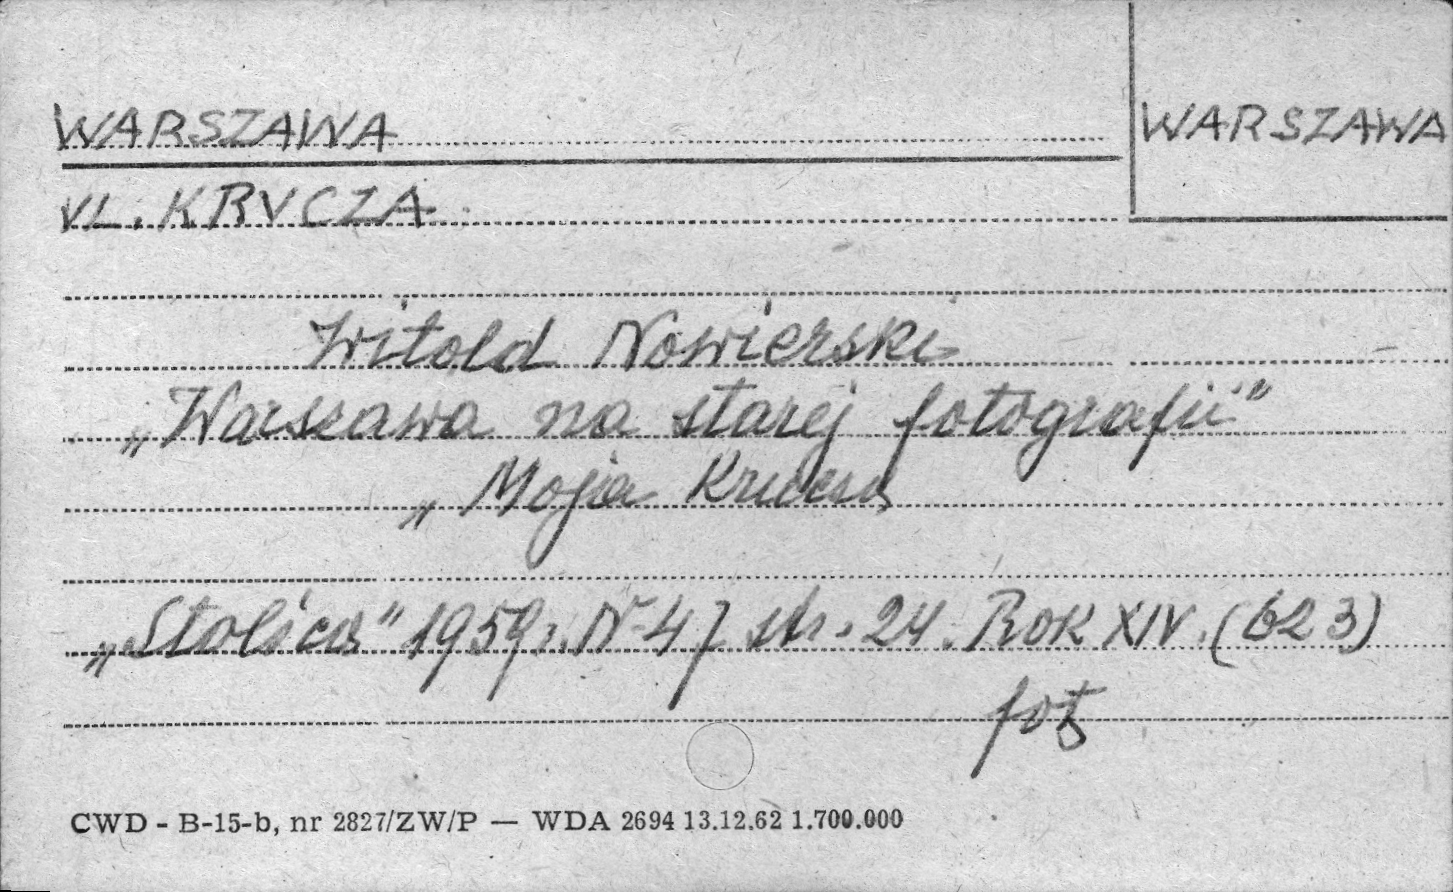 WARSZAWA
WARSZAWA
UL. KRUCZA
Witold Nowierski
„Warszawa na starej fotografii"
„Moja Krucza
„Stolica" 1959 r. Nr 47 str. 24. Rok XIV. (623)
fot
CWD - B-15-b, nr 2827/ZW/P — WDA 2694 13.12.62 1.700.000